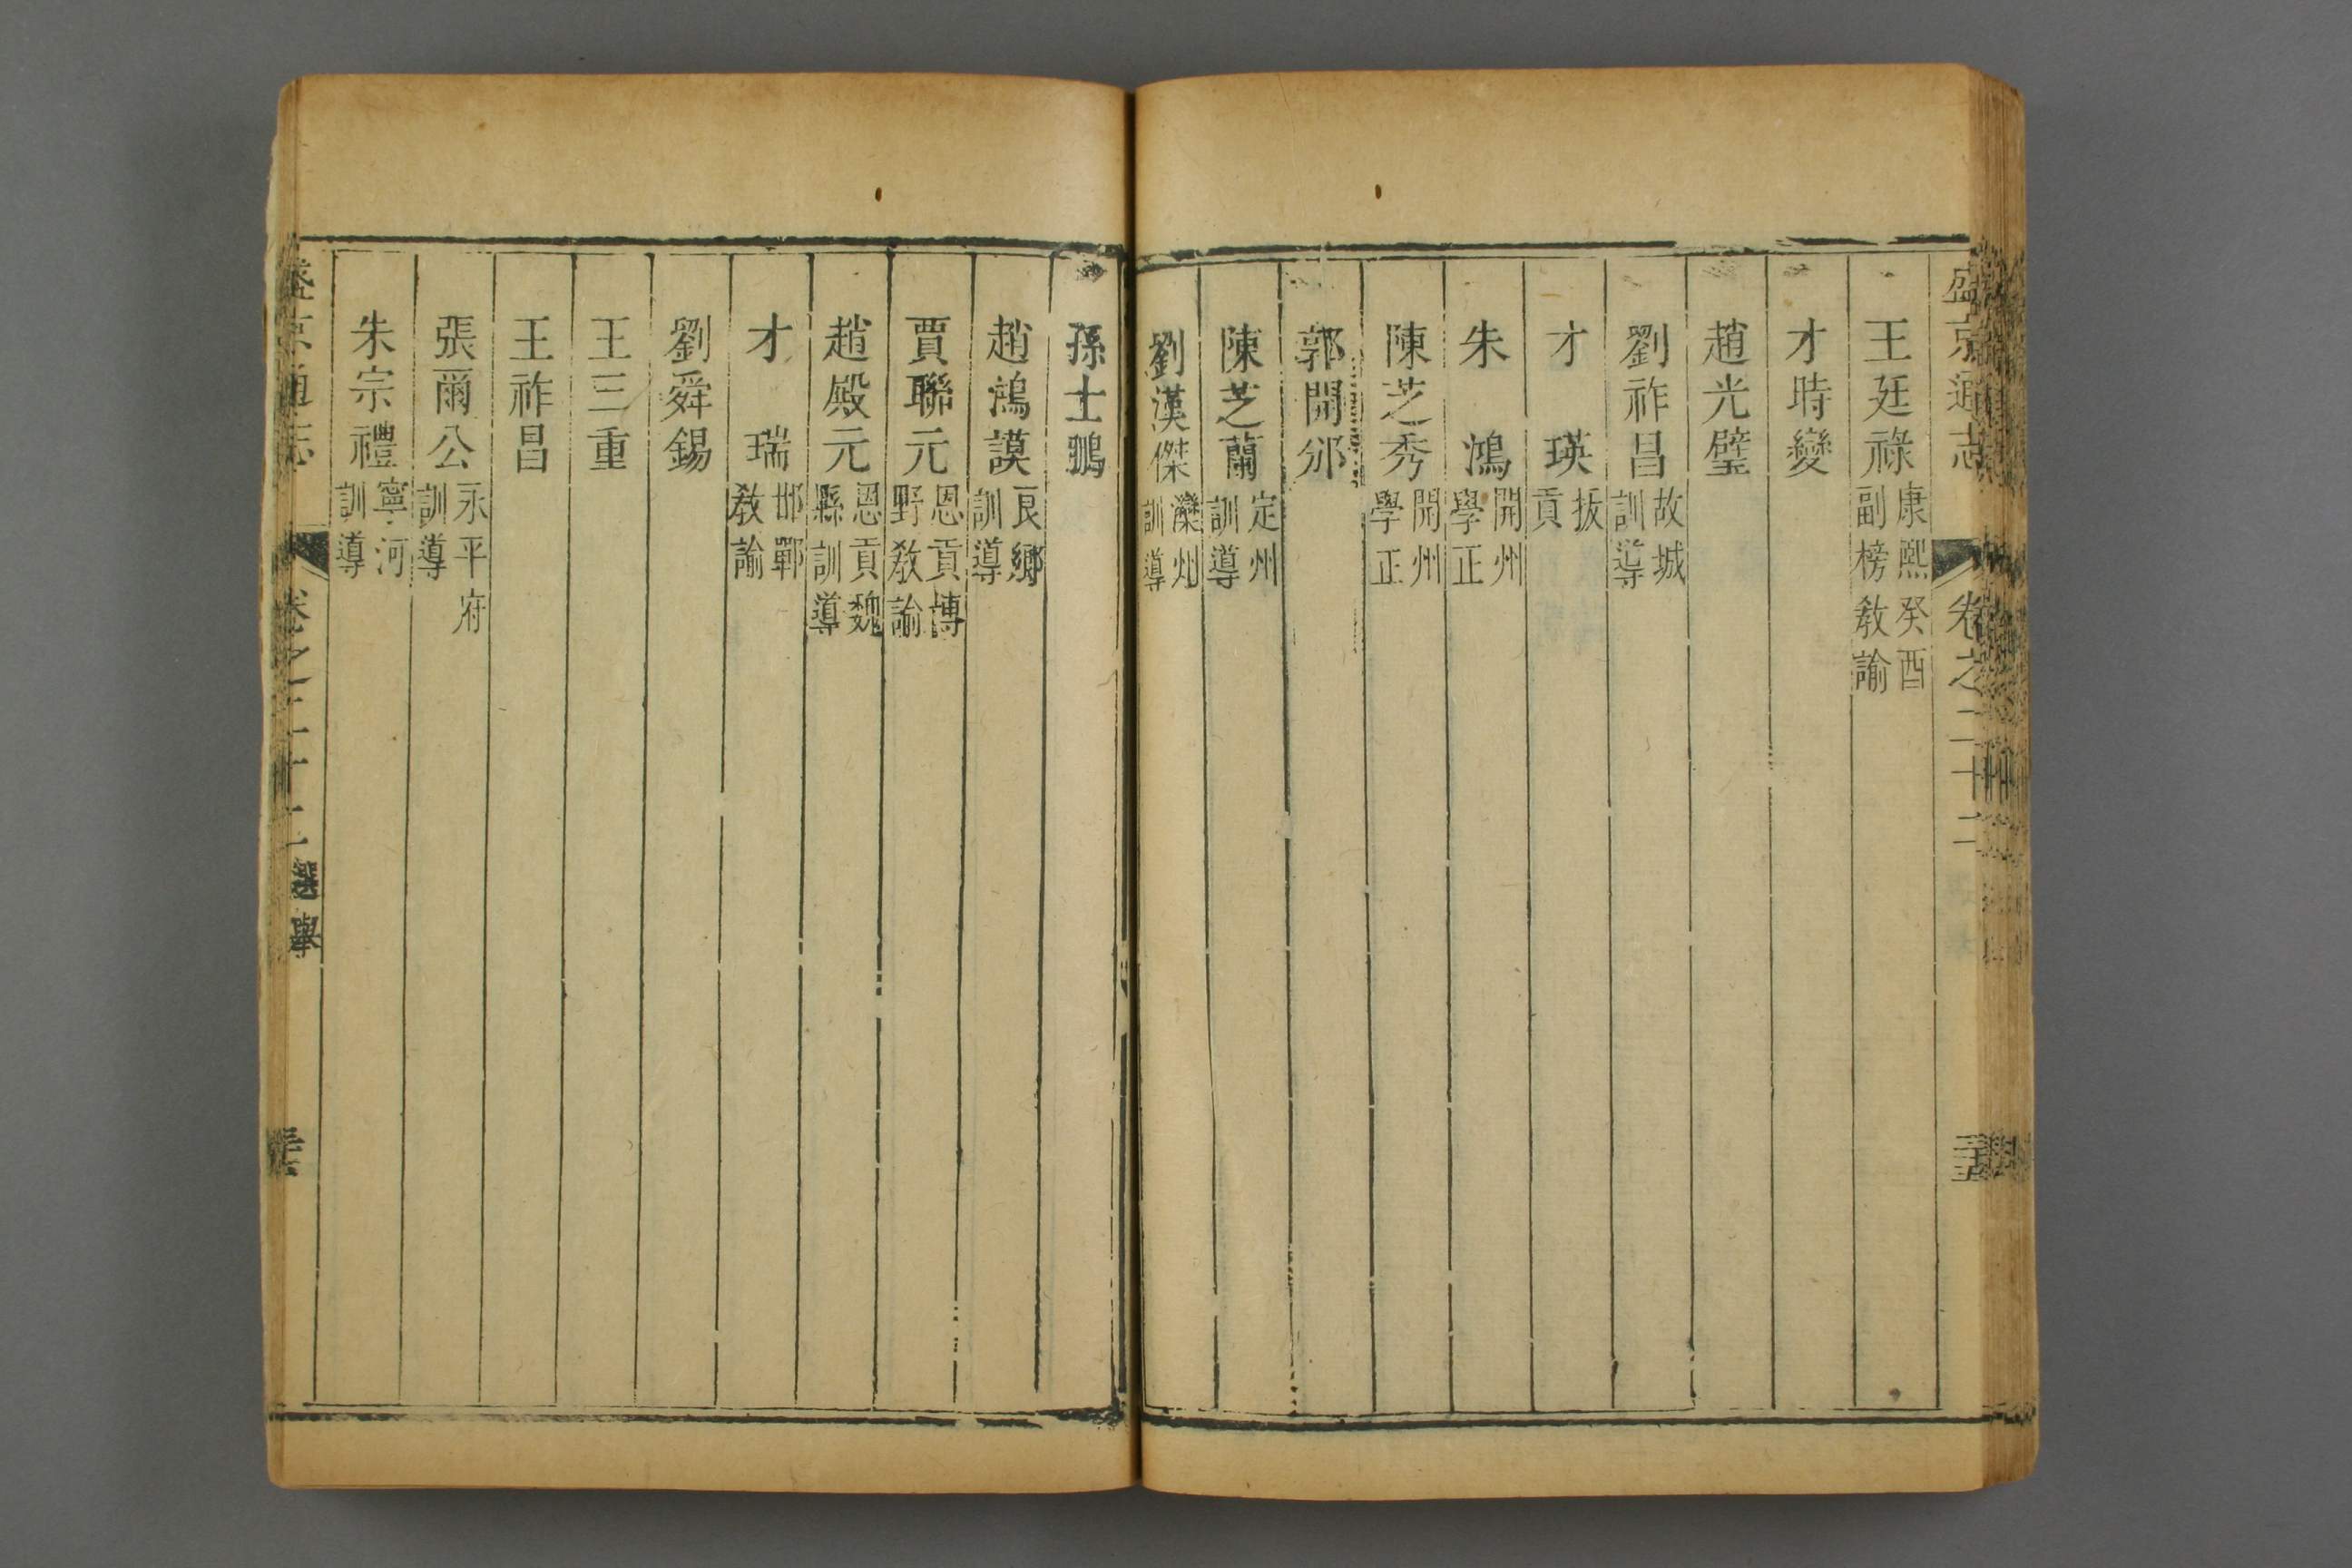 盛京通志 卷之二十二
王廷祿 康熙癸酉
副榜教諭
才時變
趙光璧
劉祚昌 故城
訓導
才 瑛 拔
貢
朱 鴻 開州
學正
陳芝秀 開州
學正
郭開邠
陳芝蘭 定州
訓導
劉漢傑 灤州
訓導
孫士鵬
趙鴻謨 良鄉
訓導
賈聯元 恩貢博
野教諭
趙殿元 恩貢魏
縣訓導
才 瑞 邯鄲
教諭
劉舜錫
王三重
王祚昌
張爾公 永平府
訓導
朱宗禮 寧河
訓導
盛京通志 卷之二十二 選舉